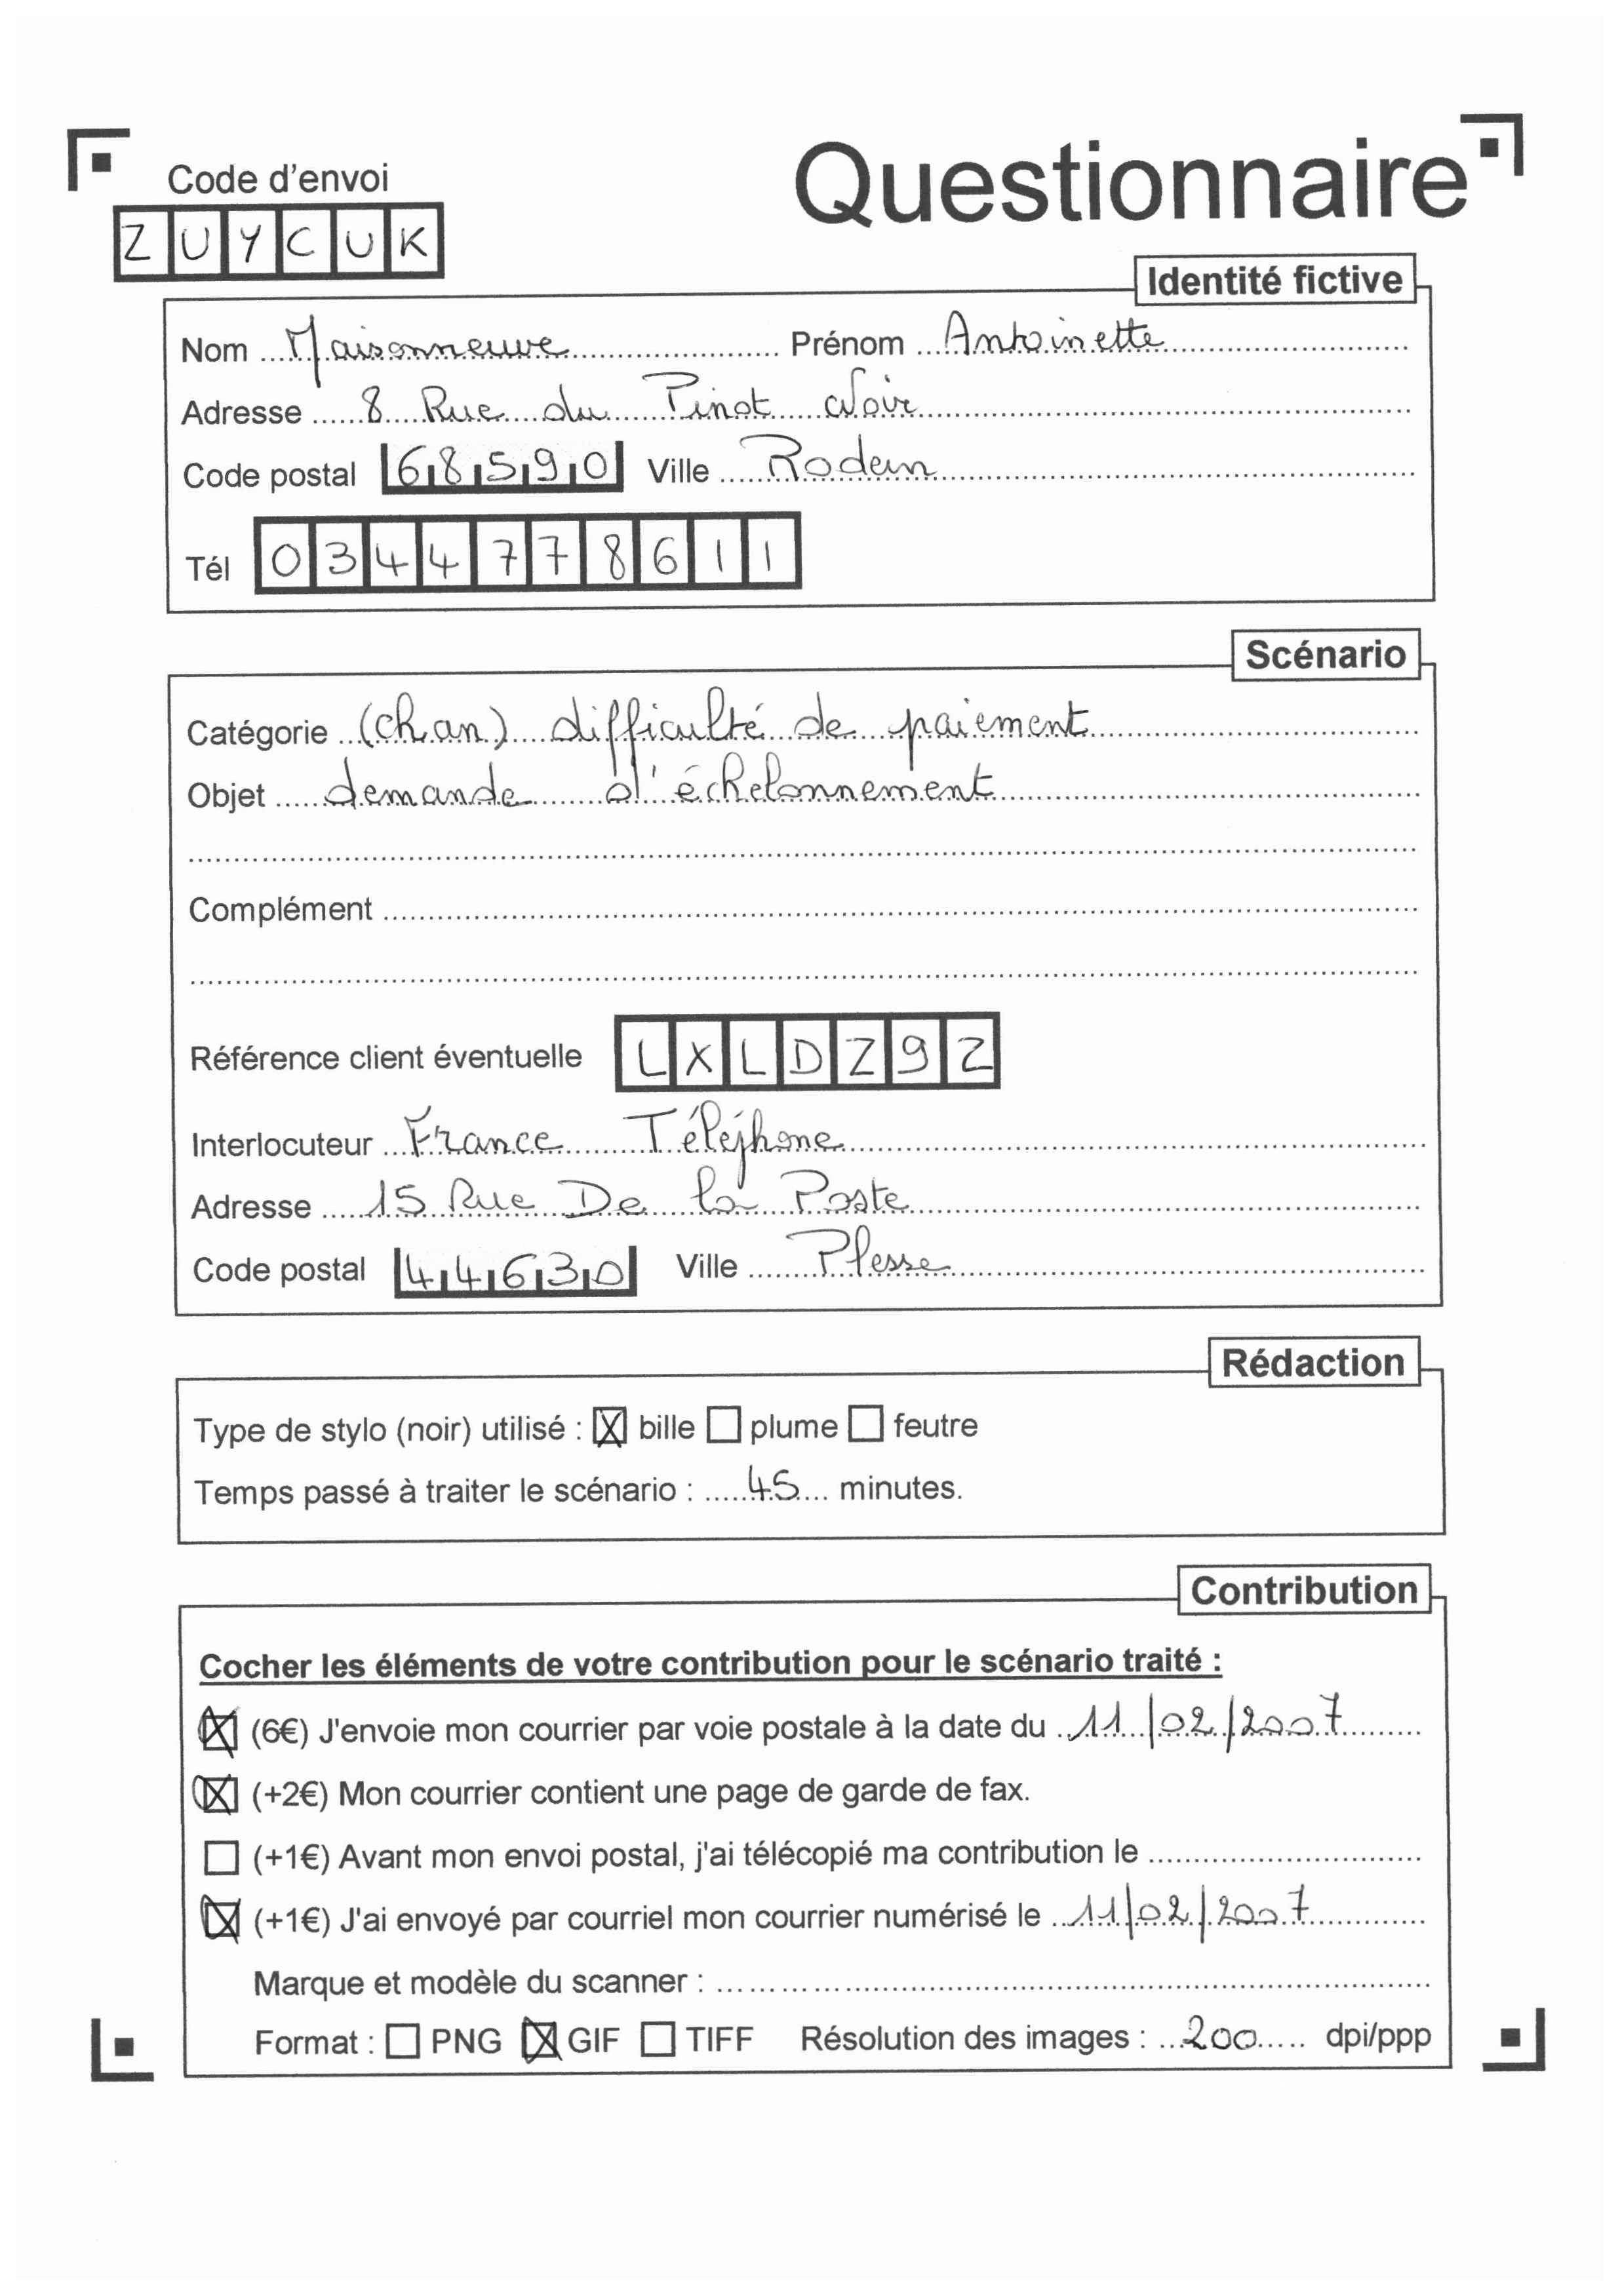 Questionnaire
Code d'envoi
ZUYCUK
Identité fictive
Nom Maisonneuve Prénom Antoinette
Adresse 8 Rue du Pinot Noir
Code postal 68590 Ville Rodern
Tél 0344778611
Scénario
Catégorie (chan) difficulté de paiement
Objet demande d'échelonnement
Complément
Référence client éventuelle LXLDZ92
Interlocuteur France Téléphone
Adresse 15 Rue De la Poste
Code postal 44630 Ville Plesse
Rédaction
Type de stylo (noir) utilisé : ☒ bille ☐ plume ☐ feutre
Temps passé à traiter le scénario : 45 minutes.
Contribution
Cocher les éléments de votre contribution pour le scénario traité :
☒ (6€) J'envoie mon courrier par voie postale à la date du 11/02/2007
☒ (+2€) Mon courrier contient une page de garde de fax.
☐ (+1€) Avant mon envoi postal, j'ai télécopié ma contribution le
☒ (+1€) J'ai envoyé par courriel mon courrier numérisé le 11/02/2007
Marque et modèle du scanner :
Format : ☐ PNG ☒ GIF ☐ TIFF Résolution des images : 200 dpi/ppp